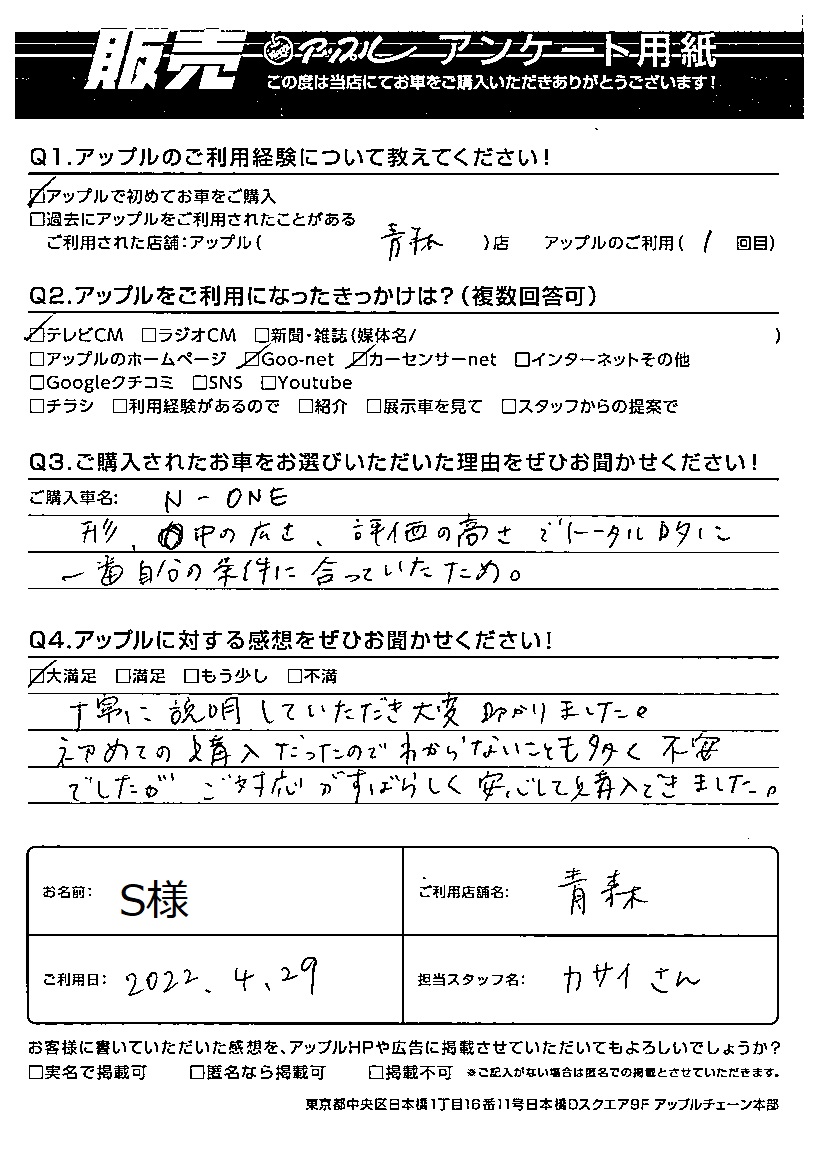 販売 アップル アンケート用紙
この度は当店にてお車をご購入いただきありがとうございます!
Q1.アップルのご利用経験について教えてください!
☑アップルで初めてお車をご購入
□過去にアップルをご利用されたことがある
ご利用された店舗:アップル( 青森 )店 アップルのご利用( 1 回目)
Q2.アップルをご利用になったきっかけは?(複数回答可)
☑テレビCM □ラジオCM □新聞・雑誌(媒体名/ )
□アップルのホームページ ☑Goo-net ☑カーセンサーnet □インターネットその他
□Googleクチコミ □SNS □Youtube
□チラシ □利用経験があるので □紹介 □展示車を見て □スタッフからの提案で
Q3.ご購入されたお車をお選びいただいた理由をぜひお聞かせください!
ご購入車名: N-ONE
形、中の広さ、評価の高さでトータル的に
一番自分の条件に合っていたため。
Q4.アップルに対する感想をぜひお聞かせください!
☑大満足 □満足 □もう少し □不満
丁寧に説明していただき大変助かりました。
初めての購入だったのでわからないことも多く不安
でしたが ご対応がすばらしく安心して購入できました。
お名前: S様
ご利用店舗名: 青森
ご利用日: 2022.4.29
担当スタッフ名: カサイさん
お客様に書いていただいた感想を、アップルHPや広告に掲載させていただいてもよろしいでしょうか?
□実名で掲載可 □匿名なら掲載可 □掲載不可 ※ご記入がない場合は匿名での掲載とさせていただきます。
東京都中央区日本橋1丁目16番11号日本橋Dスクエア9F アップルチェーン本部